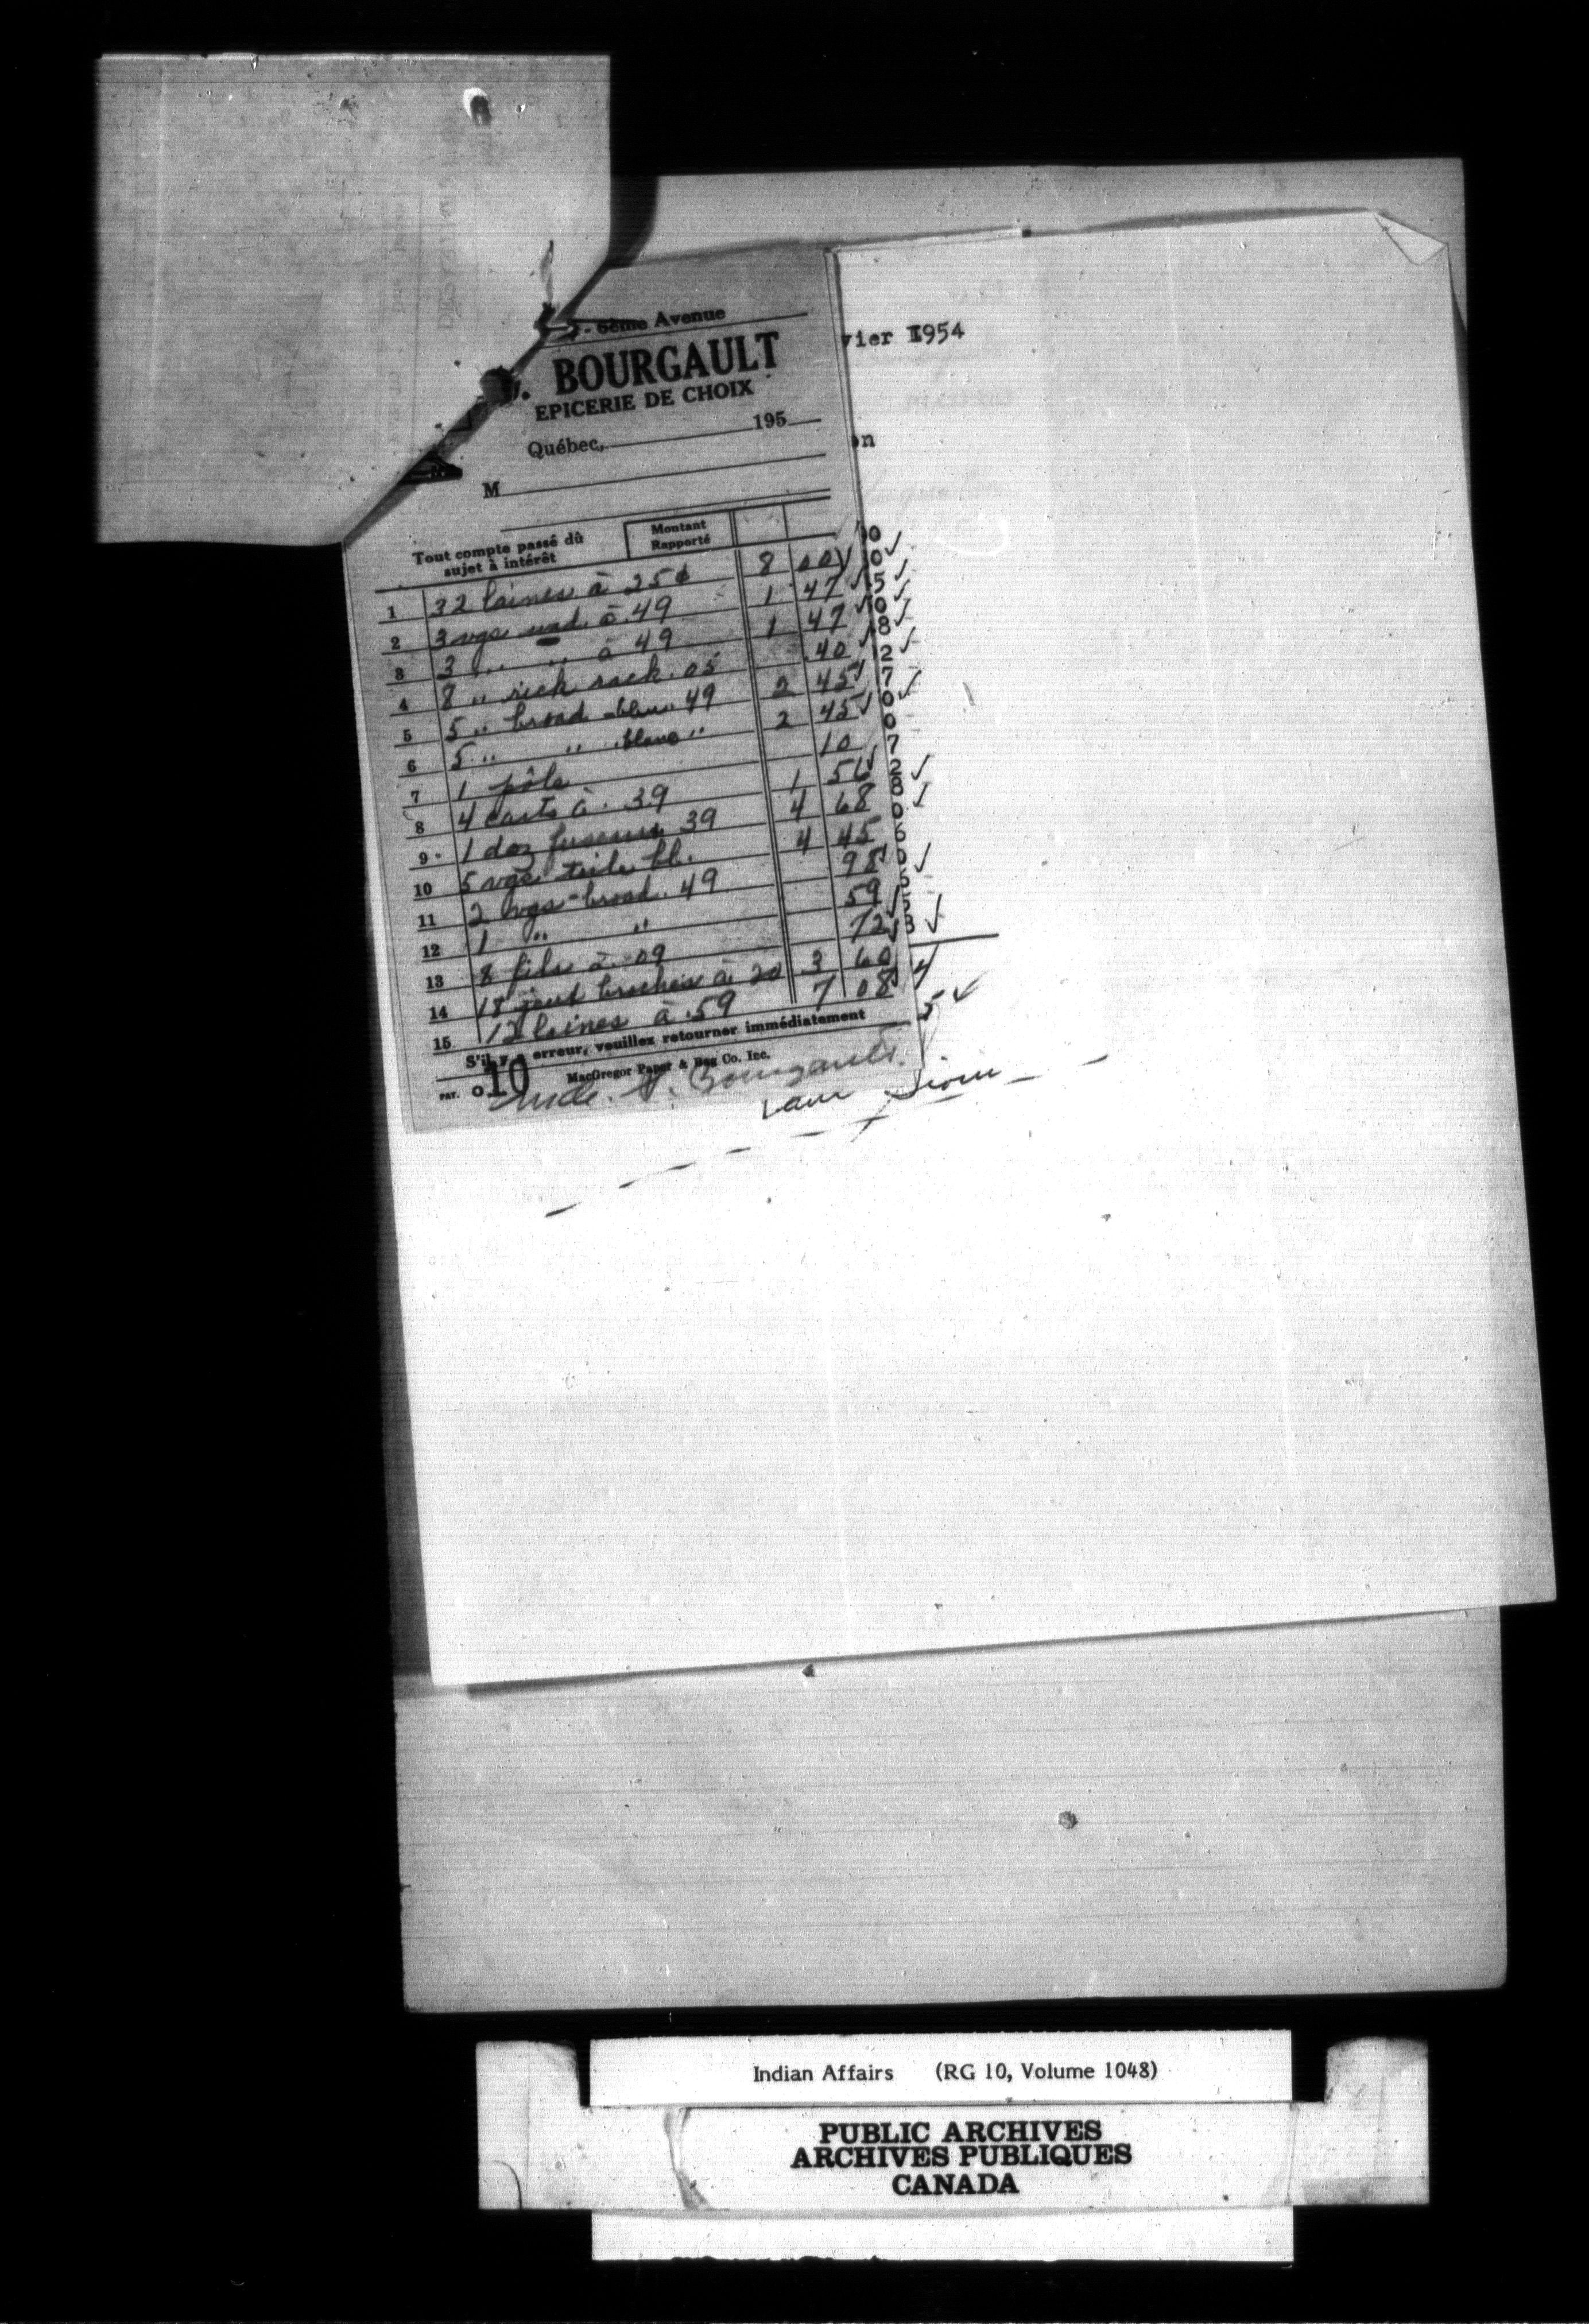 - 6ème Avenue
vier 1954
. BOURGAULT
EPICERIE DE CHOIX
Québec, 195
on
M
Tout compte passé dû
sujet à intérêt
Montant
Rapporté
1 32 laines à 25¢ 8 00
2 3 vgs à .49 1 47
3 3 " " à 49 1 47
4 8 " rick rack .05 .40
5 5 " broad bleu 49 2 45
6 5 " " blanc " 2 45
7 1 pôle 10
8 4 à .39 1 56
9 1 doz fuseaux 39 4 68
10 5 vgs toile bl. 4 45
11 2 vgs broad. 49 98
12 1 " " 59
13 8 fils à .09 72
14 18 broches à 20 3 60
15 12 laines à .59 7 08
S'il y a erreur, veuillez retourner immédiatement
PAT. O 10 MacGregor Paper & Bag Co. Inc.
Bourgault
Sioui
Indian Affairs (RG 10, Volume 1048)
PUBLIC ARCHIVES
ARCHIVES PUBLIQUES
CANADA